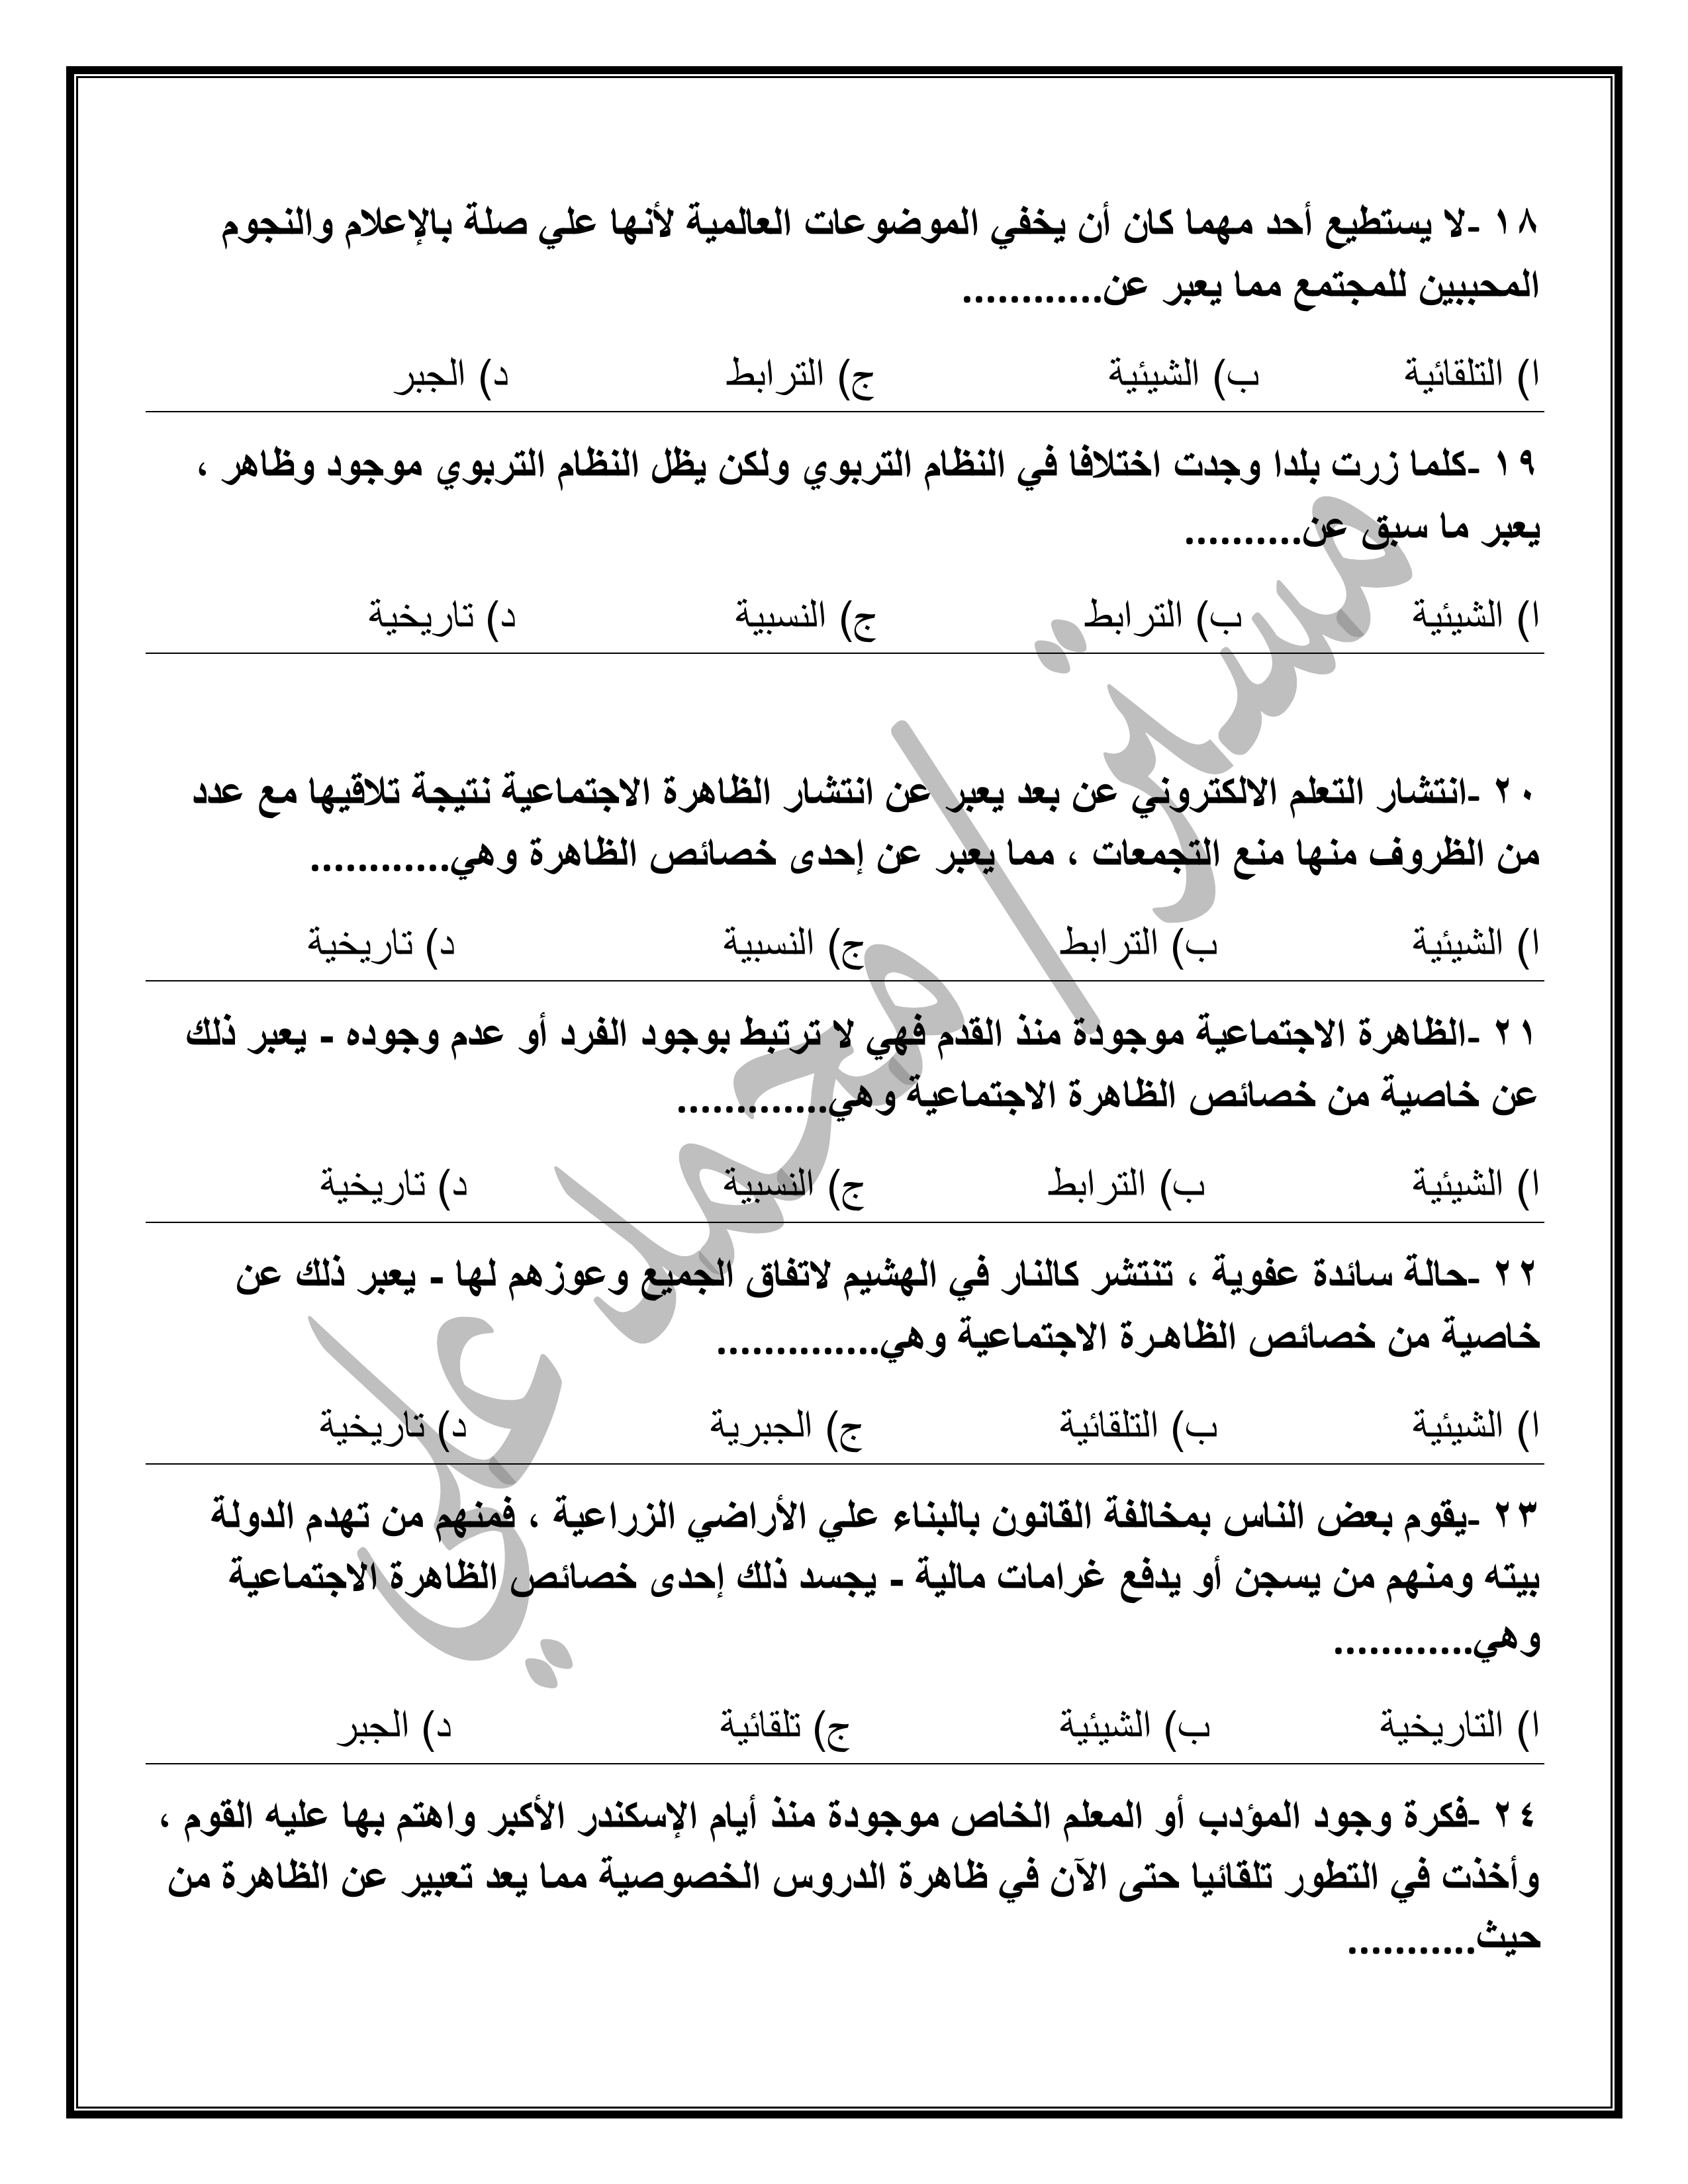 ١٨ -لا يستطيع أحد مهما كان أن يخفي الموضوعات العالمية لأنها علي صلة بالإعلام والنجوم
المحببين للمجتمع مما يعبر عن............
ا) التلقائية ب) الشيئية ج) الترابط د) الجبر
١٩ -كلما زرت بلدا وجدت اختلافا في النظام التربوي ولكن يظل النظام التربوي موجود وظاهر ،
يعبر ما سبق عن..........
ا) الشيئية ب) الترابط ج) النسبية د) تاريخية
٢٠ -انتشار التعلم الالكتروني عن بعد يعبر عن انتشار الظاهرة الاجتماعية نتيجة تلاقيها مع عدد
من الظروف منها منع التجمعات ، مما يعبر عن إحدى خصائص الظاهرة وهي............
ا) الشيئية ب) الترابط ج) النسبية د) تاريخية
٢١ -الظاهرة الاجتماعية موجودة منذ القدم فهي لا ترتبط بوجود الفرد أو عدم وجوده - يعبر ذلك
عن خاصية من خصائص الظاهرة الاجتماعية وهي.............
ا) الشيئية ب) الترابط ج) النسبية د) تاريخية
٢٢ -حالة سائدة عفوية ، تنتشر كالنار في الهشيم لاتفاق الجميع وعوزهم لها - يعبر ذلك عن
خاصية من خصائص الظاهرة الاجتماعية وهي..............
ا) الشيئية ب) التلقائية ج) الجبرية د) تاريخية
٢٣ -يقوم بعض الناس بمخالفة القانون بالبناء علي الأراضي الزراعية ، فمنهم من تهدم الدولة
بيته ومنهم من يسجن أو يدفع غرامات مالية - يجسد ذلك إحدى خصائص الظاهرة الاجتماعية
وهي............
ا) التاريخية ب) الشيئية ج) تلقائية د) الجبر
٢٤ -فكرة وجود المؤدب أو المعلم الخاص موجودة منذ أيام الإسكندر الأكبر واهتم بها عليه القوم ،
وأخذت في التطور تلقائيا حتى الآن في ظاهرة الدروس الخصوصية مما يعد تعبير عن الظاهرة من
حيث...........
مستر/محمد علي